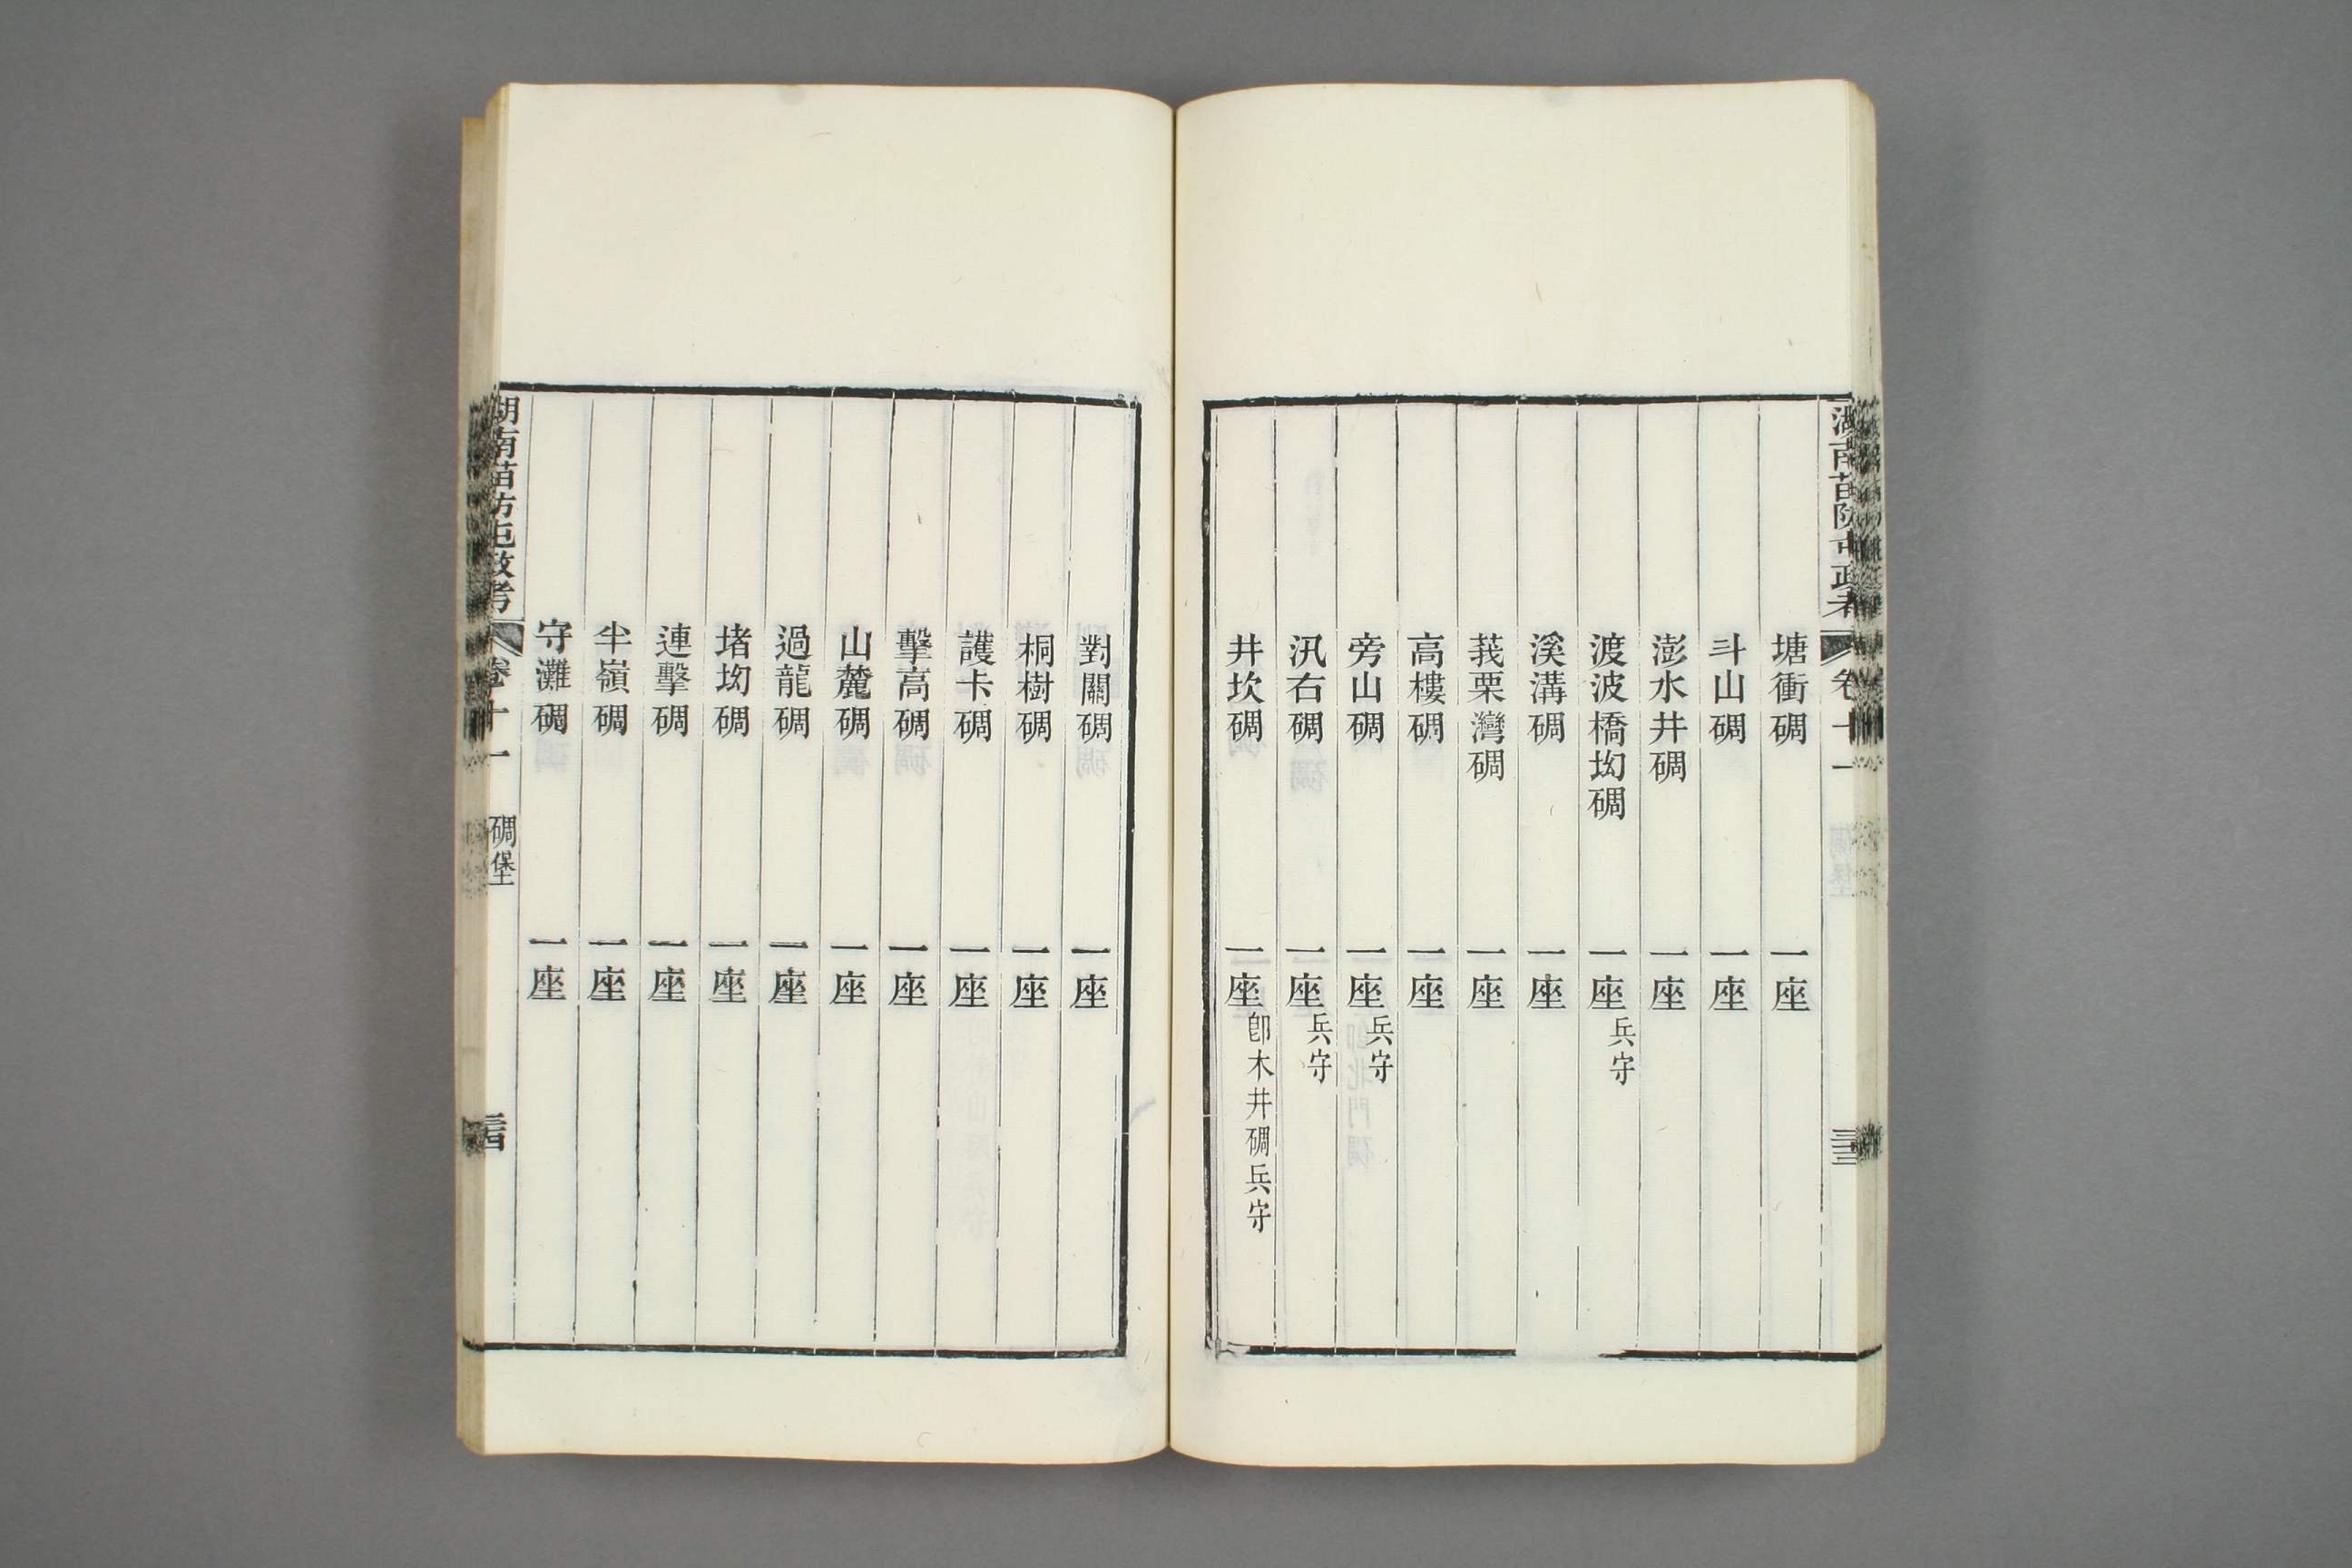 湖南苗防屯政考 卷十一 三三
塘衝碉 一座
斗山碉 一座
澎水井碉 一座
渡波橋坳碉 一座 兵守
溪溝碉 一座
莪栗灣碉 一座
高樓碉 一座
旁山碉 一座 兵守
汛右碉 一座 兵守
井坎碉 一座 卽木井碉兵守
對關碉 一座
桐樹碉 一座
護卡碉 一座
擊高碉 一座
山麓碉 一座
過龍碉 一座
堵坳碉 一座
連擊碉 一座
半嶺碉 一座
守灘碉 一座
湖南苗防屯政考 卷十一 碉堡